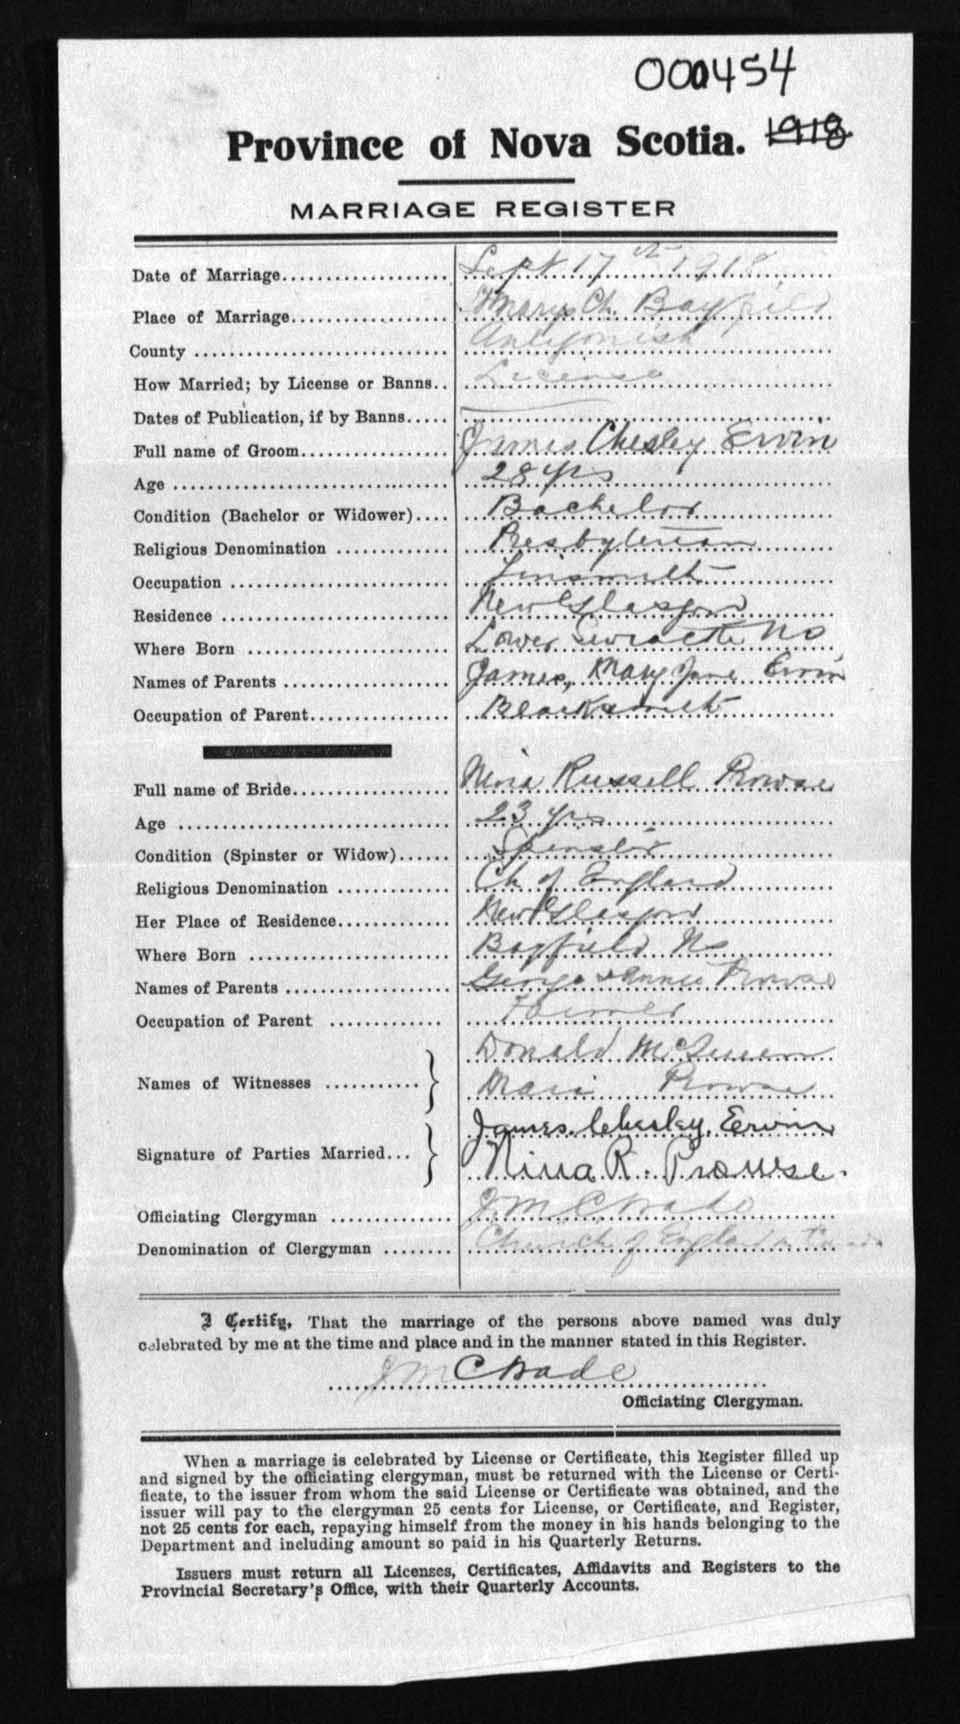 000454
Province of Nova Scotia. 1918
MARRIAGE REGISTER
Date of Marriage.................... Sept 17th 1918
Place of Marriage................... Marys Ch. Bayfield
County ............................. Antigonish
How Married; by License or Banns.. License
Dates of Publication, if by Banns.....
Full name of Groom.................. James Chesley Ervin
Age ................................ 28 yrs
Condition (Bachelor or Widower).... Bachelor
Religious Denomination ............. Presbyterian
Occupation ......................... Tinsmith
Residence .......................... New Glasgow
Where Born ......................... Lower NS
Names of Parents ................... James, Mary Jane Ervin
Occupation of Parent................ Blacksmith
Full name of Bride.................. Nina Russell Prowse
Age ................................ 23 yrs
Condition (Spinster or Widow)...... Spinster
Religious Denomination ............. Ch of England
Her Place of Residence............. New Glasgow
Where Born ......................... Bayfield NS
Names of Parents ................... George & Annie Prowse
Occupation of Parent ............... Farmer
Donald
Names of Witnesses ...........
Prowse
James Chesley Ervin
Signature of Parties Married...
Nina R. Prowse.
Officiating Clergyman .............. J M C Wade
Denomination of Clergyman ........ Church of England in Canada
I Certify, That the marriage of the persons above named was duly
celebrated by me at the time and place and in the manner stated in this Register.
J M C Wade
Officiating Clergyman.
When a marriage is celebrated by License or Certificate, this Register filled up
and signed by the officiating clergyman, must be returned with the License or Certi-
ficate, to the issuer from whom the said License or Certificate was obtained, and the
issuer will pay to the clergyman 25 cents for License, or Certificate, and Register,
not 25 cents for each, repaying himself from the money in his hands belonging to the
Department and including amount so paid in his Quarterly Returns.
Issuers must return all Licenses, Certificates, Affidavits and Registers to the
Provincial Secretary's Office, with their Quarterly Accounts.